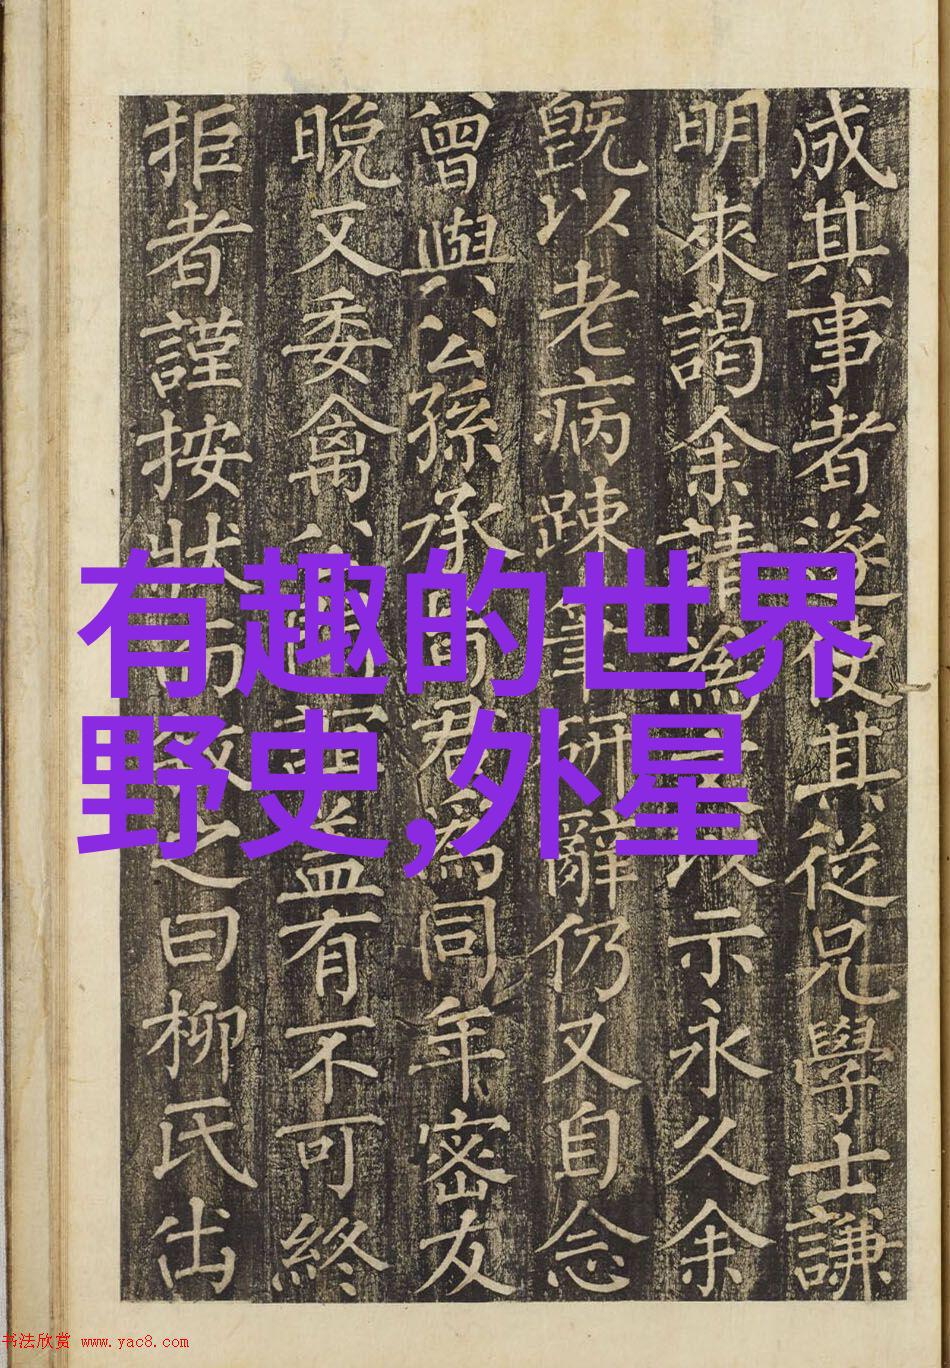 有趣的世界
野史,外星
成其事者遂使其從兄學士謙
明來謁余請為文以示永久余
既以老病踈筆研辭仍又自念
曾與公孫承旨君為同年密友
晚又委禽盖有不可終
拒者謹按狀而敘之曰柳氏出
书法欣赏 www.yac8.com